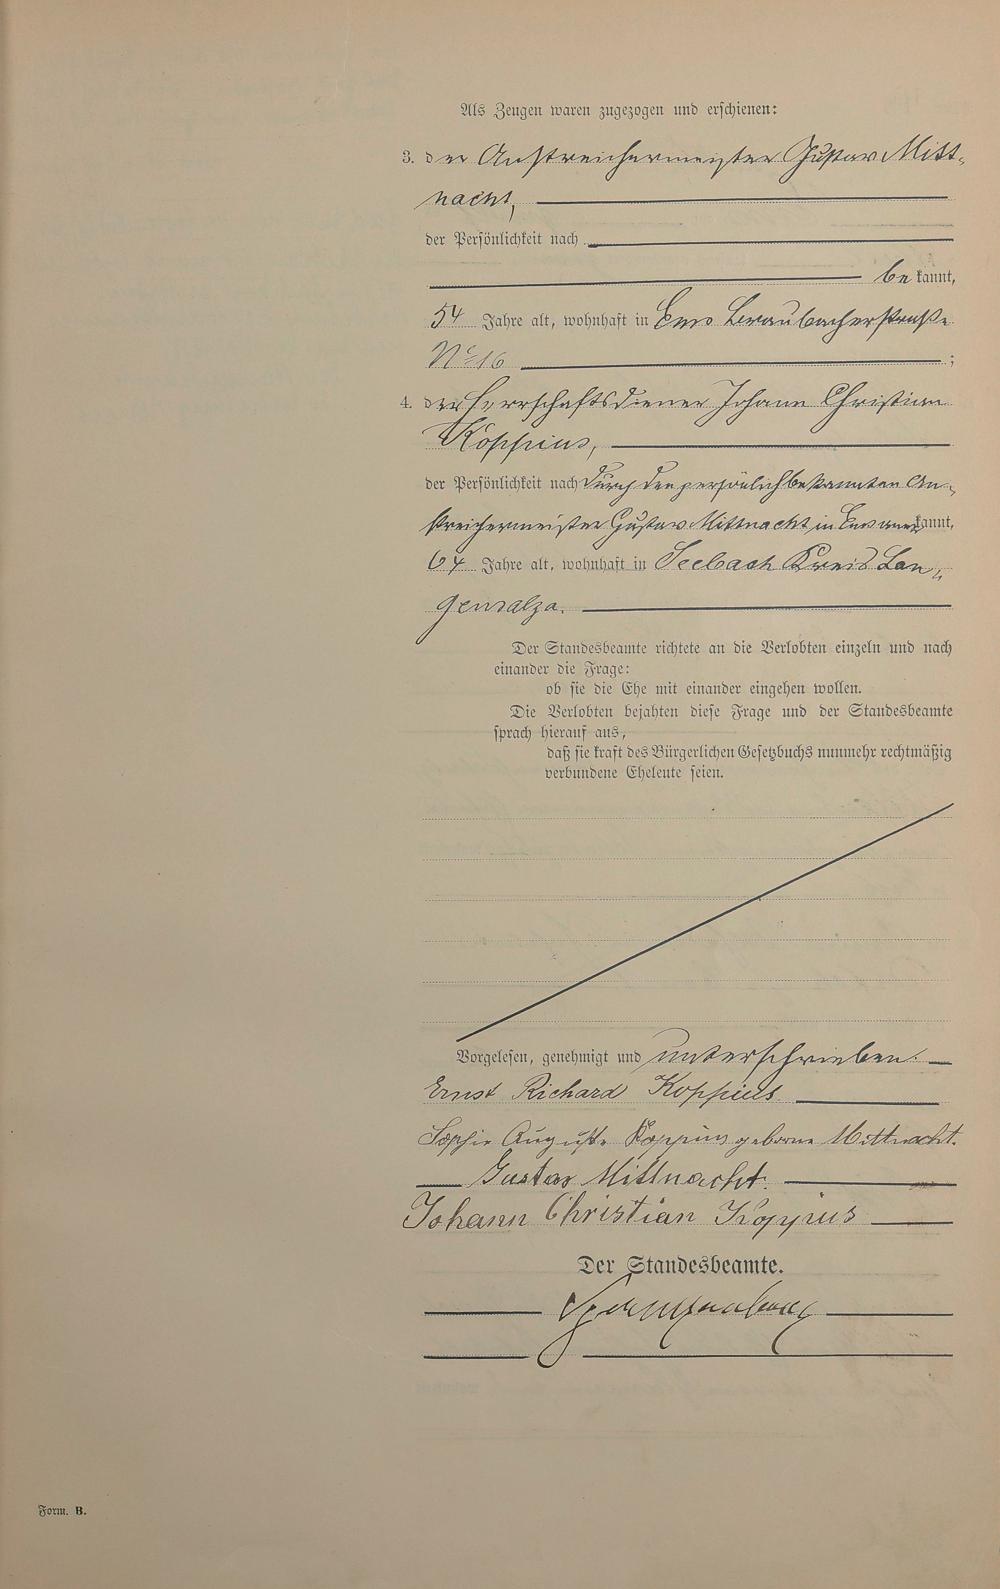 Als Zeugen waren zugezogen und erschienen:
3. der Anstreichermeister Gustav Mitt-
nacht,
der Persönlichkeit nach
be kannt,
54 Jahre alt, wohnhaft in Ems Braubacherstraße
No 16 ;
4. der Herrschaftsdiener Johann Christian
Koppius,
der Persönlichkeit nach durch den persönlich bekannten An-
streichermeister Gustav Mittnacht in Ems anerkannt,
64 Jahre alt, wohnhaft in Seebach Kreis Lan-
gensalza.
Der Standesbeamte richtete an die Verlobten einzeln und nach
einander die Frage:
ob sie die Ehe mit einander eingehen wollen.
Die Verlobten bejahten diese Frage und der Standesbeamte
sprach hierauf aus,
daß sie kraft des Bürgerlichen Gesetzbuchs nunmehr rechtmäßig
verbundene Eheleute seien.
Vorgelesen, genehmigt und unterschrieben.
Ernst Richard Koppius
Sophie Auguste Koppius geborne Mittnacht.
Gustav Mittnacht.
Johann Christian Koppius
Der Standesbeamte.
Form. B.